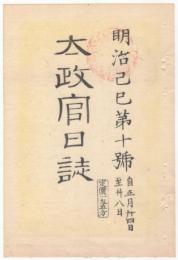 明治己巳第十號
自正月卄四日
至卄八日
太政官日誌